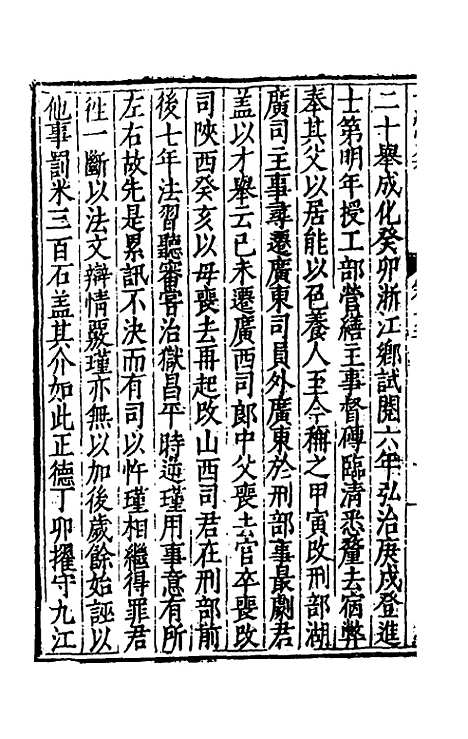 二十舉成化癸卯浙江鄉試閱六年弘治庚戌登進
士第明年授工部營繕主事督磚臨清悉釐去宿弊
奉其父以居能以色養人至今稱之甲寅改刑部湖
廣司主事尋遷廣東司員外廣東於刑部事最劇君
盖以才舉云已未遷廣西司郎中父喪去官卒喪改
司陜西癸亥以母喪去再起改山西司君在刑部前
後七年法習聽審客治獄昌平時逆瑾用事意有所
左右故先是累訊不決而有司以忤瑾相繼得罪君
徃一斷以法文辯情覈瑾亦無以加後歲餘始誣以
他事罰米三百石盖其介如此正德丁卯擢守九江